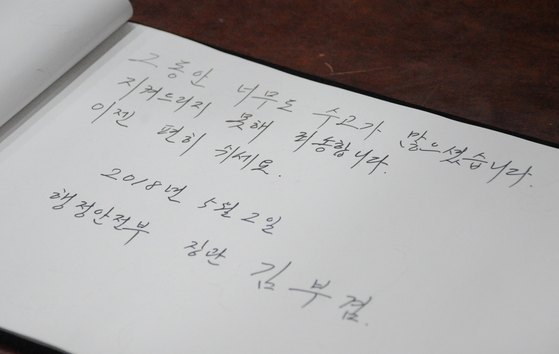 그 동안 너무도 수고가 많으셨습니다.
지켜드리지 못해 죄송합니다.
이젠 편히 쉬세요.
2018년 5월 2일
행정안전부 장관 김부겸.